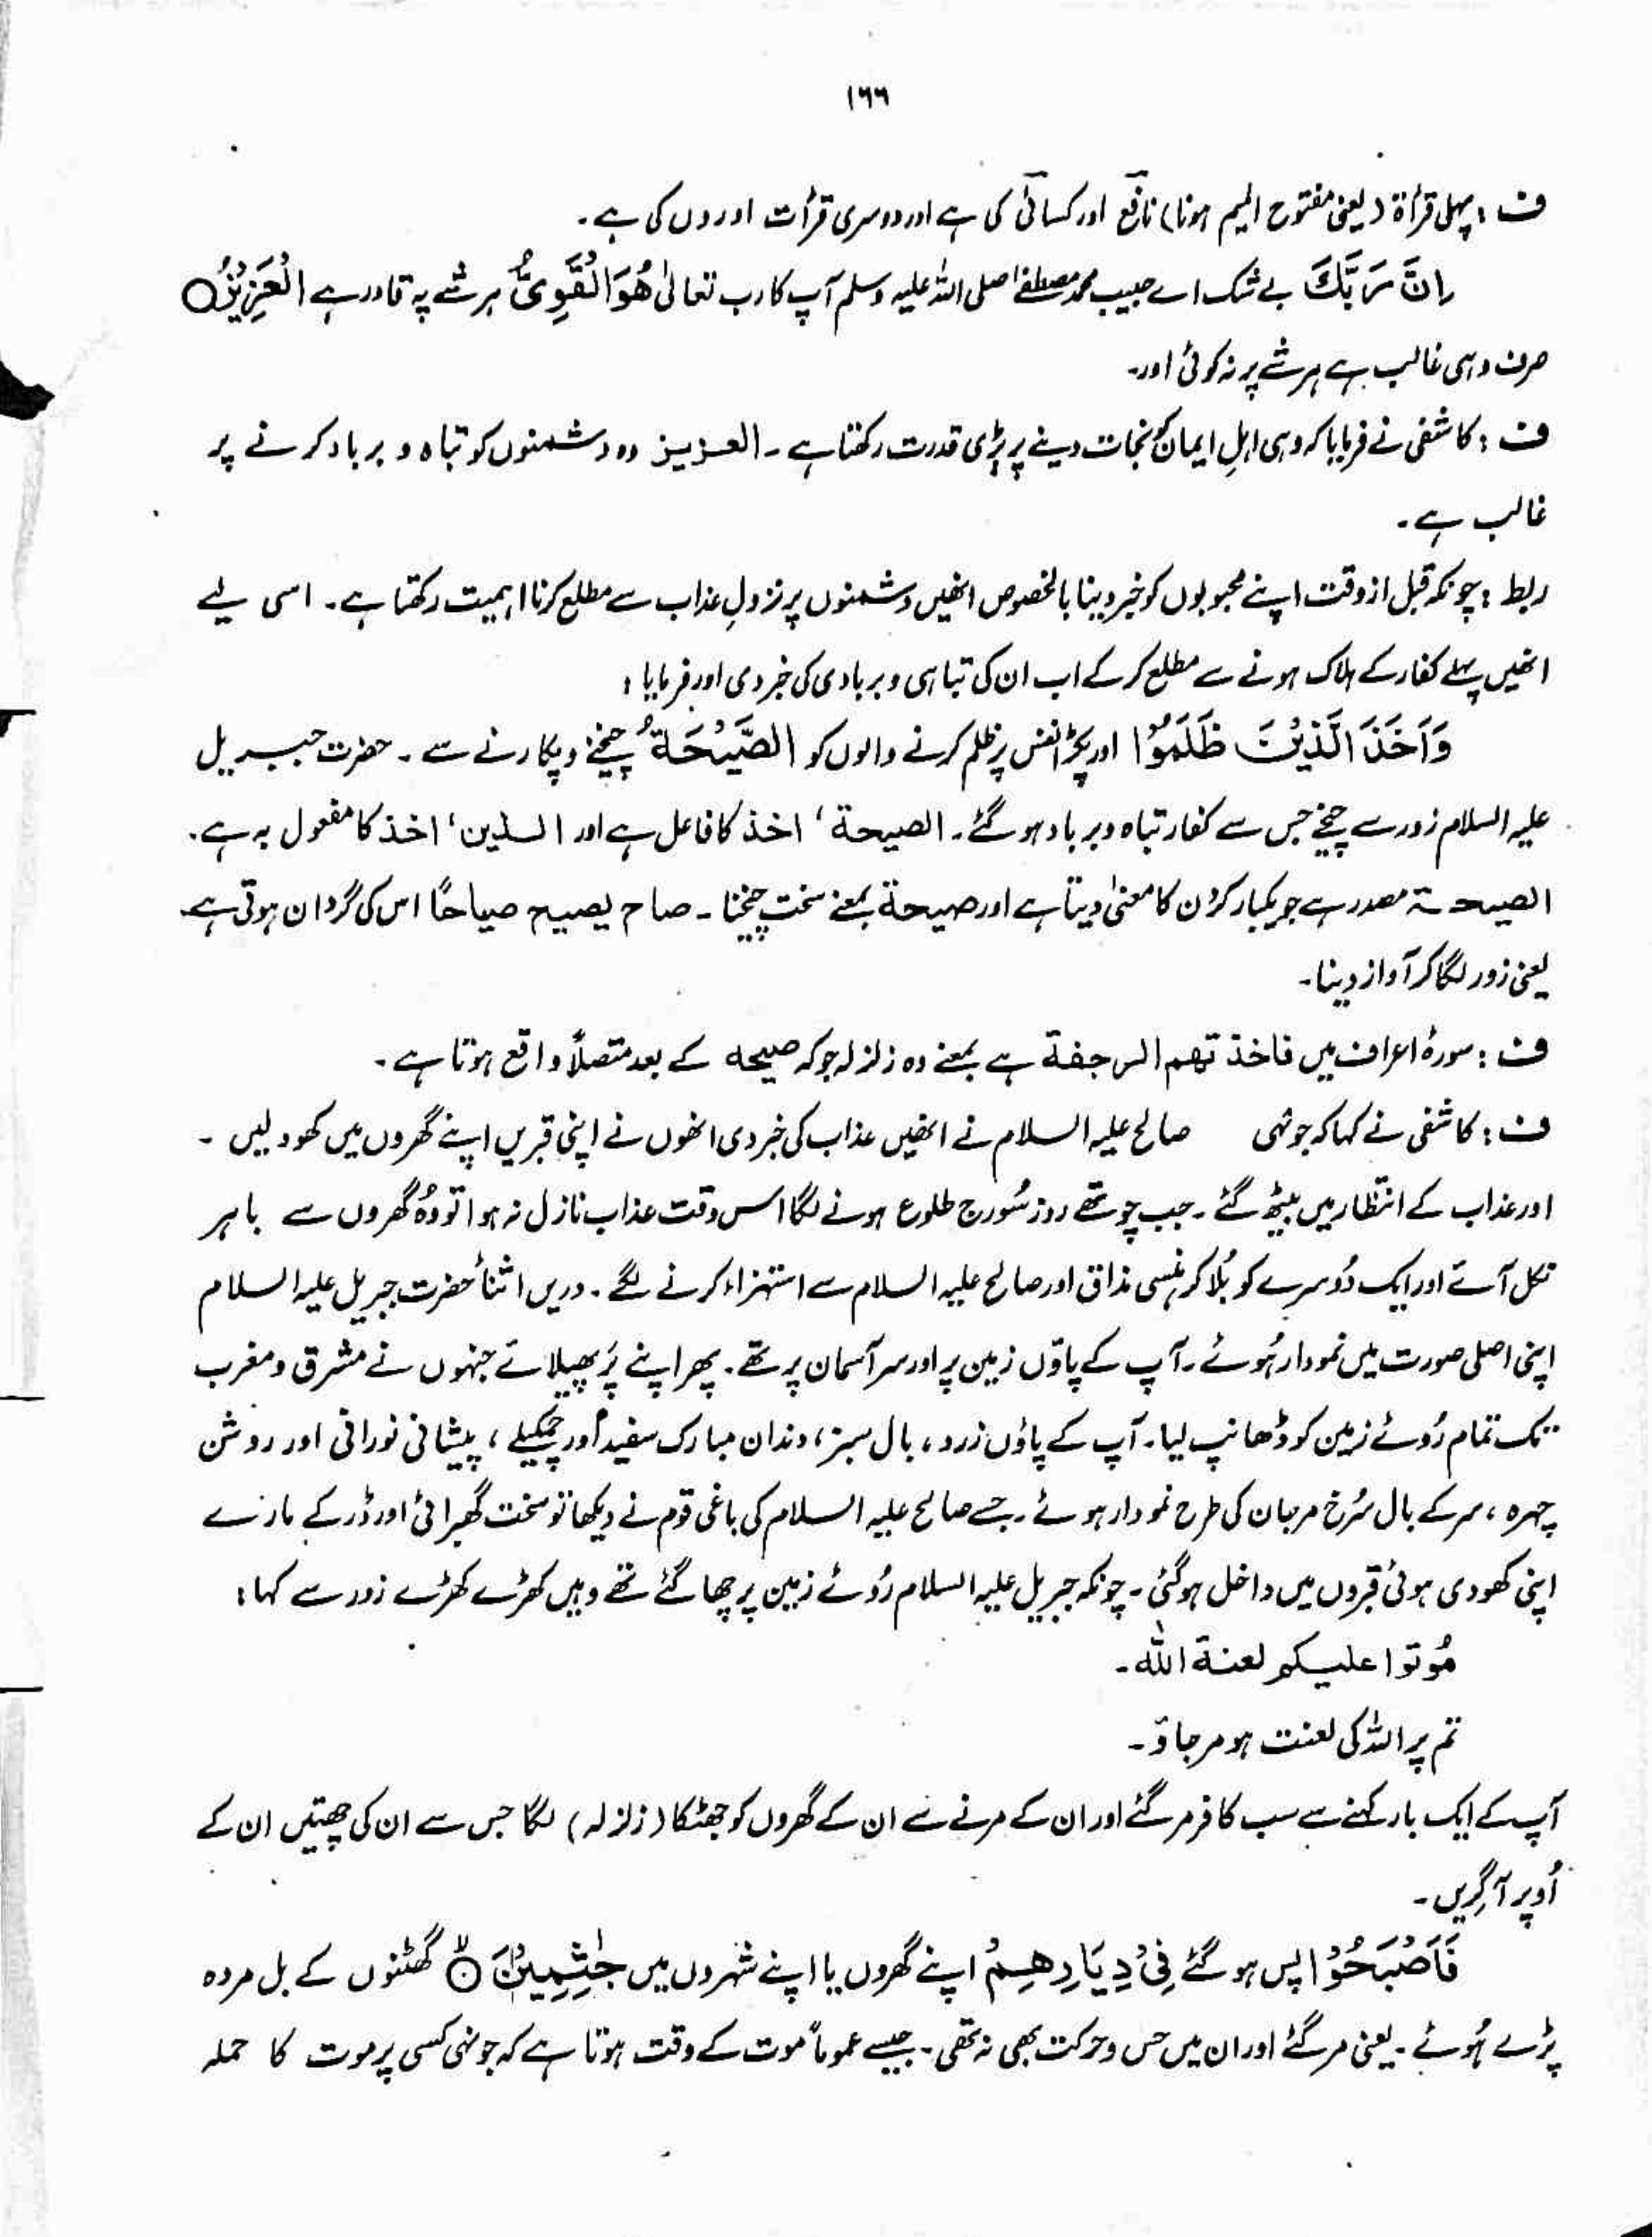 ۱۶۶
ف : پہلی قرأۃ (یعنی مفتوح المیم ہونا) نافع اور کسائی کی ہے اور دوسری قرأت اوروں کی ہے۔
اِنَّ رَبَّكَ بے شک اے حبیب محمد مصطفےٰ صلی اللہ علیہ وسلم آپ کا رب تعالیٰ هُوَ الْقَوِیُّ ہر شے پہ قادر ہے الْعَزِیْزُ ۝
صرف وہی غالب ہے ہر شے پر نہ کوئی اور۔
ف : کاشفی نے فرمایا کہ وہی اہلِ ایمان کو نجات دینے پر بڑی قدرت رکھتا ہے۔ العزیز وہ دشمنوں کو تباہ و برباد کرنے پر
غالب ہے۔
ربط : چونکہ قبل از وقت اپنے محبوبوں کو خبر دینا بالخصوص انھیں دشمنوں پر نزولِ عذاب سے مطلع کرنا اہمیت رکھتا ہے۔ اسی لیے
انھیں پہلے کفار کے ہلاک ہونے سے مطلع کر کے اب ان کی تباہی و بربادی کی خبر دی اور فرمایا :
وَاَخَذَ الَّذِیْنَ ظَلَمُوْا اور پکڑا نفس پر ظلم کرنے والوں کو الصَّیْحَةُ چیخنے و پکارنے سے۔ حضرت جبریل
علیہ السلام زور سے چیخے جس سے کفار تباہ و برباد ہو گئے۔ الصیحۃ ، اخذ کا فاعل ہے اور الذین ، اخذ کا مفعول بہ ہے۔
الصیحۃ مصدر ہے جو یکبار کردن کا معنیٰ دیتا ہے اور صیحۃ بمعنے سخت چیخنا۔ صاح یصیح صیاحًا اس کی گردان ہوتی ہے
یعنی زور لگا کر آواز دینا۔
ف : سورۂ اعراف میں فاخذتهم الرجفة ہے بمعنے وہ زلزلہ جو کہ صیحه کے بعد متصلاً واقع ہوتا ہے۔
ف : کاشفی نے کہا کہ جونہی صالح علیہ السلام نے انھیں عذاب کی خبر دی انھوں نے اپنی قبریں اپنے گھروں میں کھود لیں۔
اور عذاب کے انتظار میں بیٹھ گئے۔ جب چوتھے روز سُورج طلوع ہونے لگا اس وقت عذاب نازل نہ ہوا تو وُہ گھروں سے باہر
نکل آئے اور ایک دُوسرے کو بُلا کر ہنسی مذاق اور صالح علیہ السلام سے استہزاء کرنے لگے۔ دریں اثنأ حضرت جبریل علیہ السلام
اپنی اصلی صورت میں نمودار ہُوئے۔ آپ کے پاؤں زمین پر اور سر آسمان پر تھے۔ پھر اپنے پَر پھیلائے جنہوں نے مشرق و مغرب
تک تمام رُوئے زمین کو ڈھانپ لیا۔ آپ کے پاؤں زرد ، بال سبز ، دندان مبارک سفید اور چمکیلے ، پیشانی نورانی اور روشن
چہرہ ، سر کے بال سُرخ مرجان کی طرح نمودار ہوئے۔ جسے صالح علیہ السلام کی باغی قوم نے دیکھا تو سخت گھبرائی اور ڈر کے مارے
اپنی کھودی ہوئی قبروں میں داخل ہو گئی۔ چونکہ جبریل علیہ السلام رُوئے زمین پر چھا گئے تھے وہیں کھڑے کھڑے زور سے کہا :
مُوتوا علیکم لعنة الله۔
تم پر اللہ کی لعنت ہو مر جاؤ۔
آپ کے ایک بار کہنے سے سب کافر مر گئے اور ان کے مرنے سے ان کے گھروں کو جھٹکا (زلزلہ) لگا جس سے ان کی چھتیں ان کے
اُوپر آ گریں۔
فَاَصْبَحُوْا پس ہو گئے فِیْ دِیَارِهِمْ اپنے گھروں یا اپنے شہروں میں جٰثِمِیْنَ ۝ گھٹنوں کے بل مردہ
پڑے ہُوئے۔ یعنی مر گئے اور ان میں حس و حرکت بھی نہ تھی۔ جیسے عموماً موت کے وقت ہوتا ہے کہ جونہی کسی پر موت کا حملہ